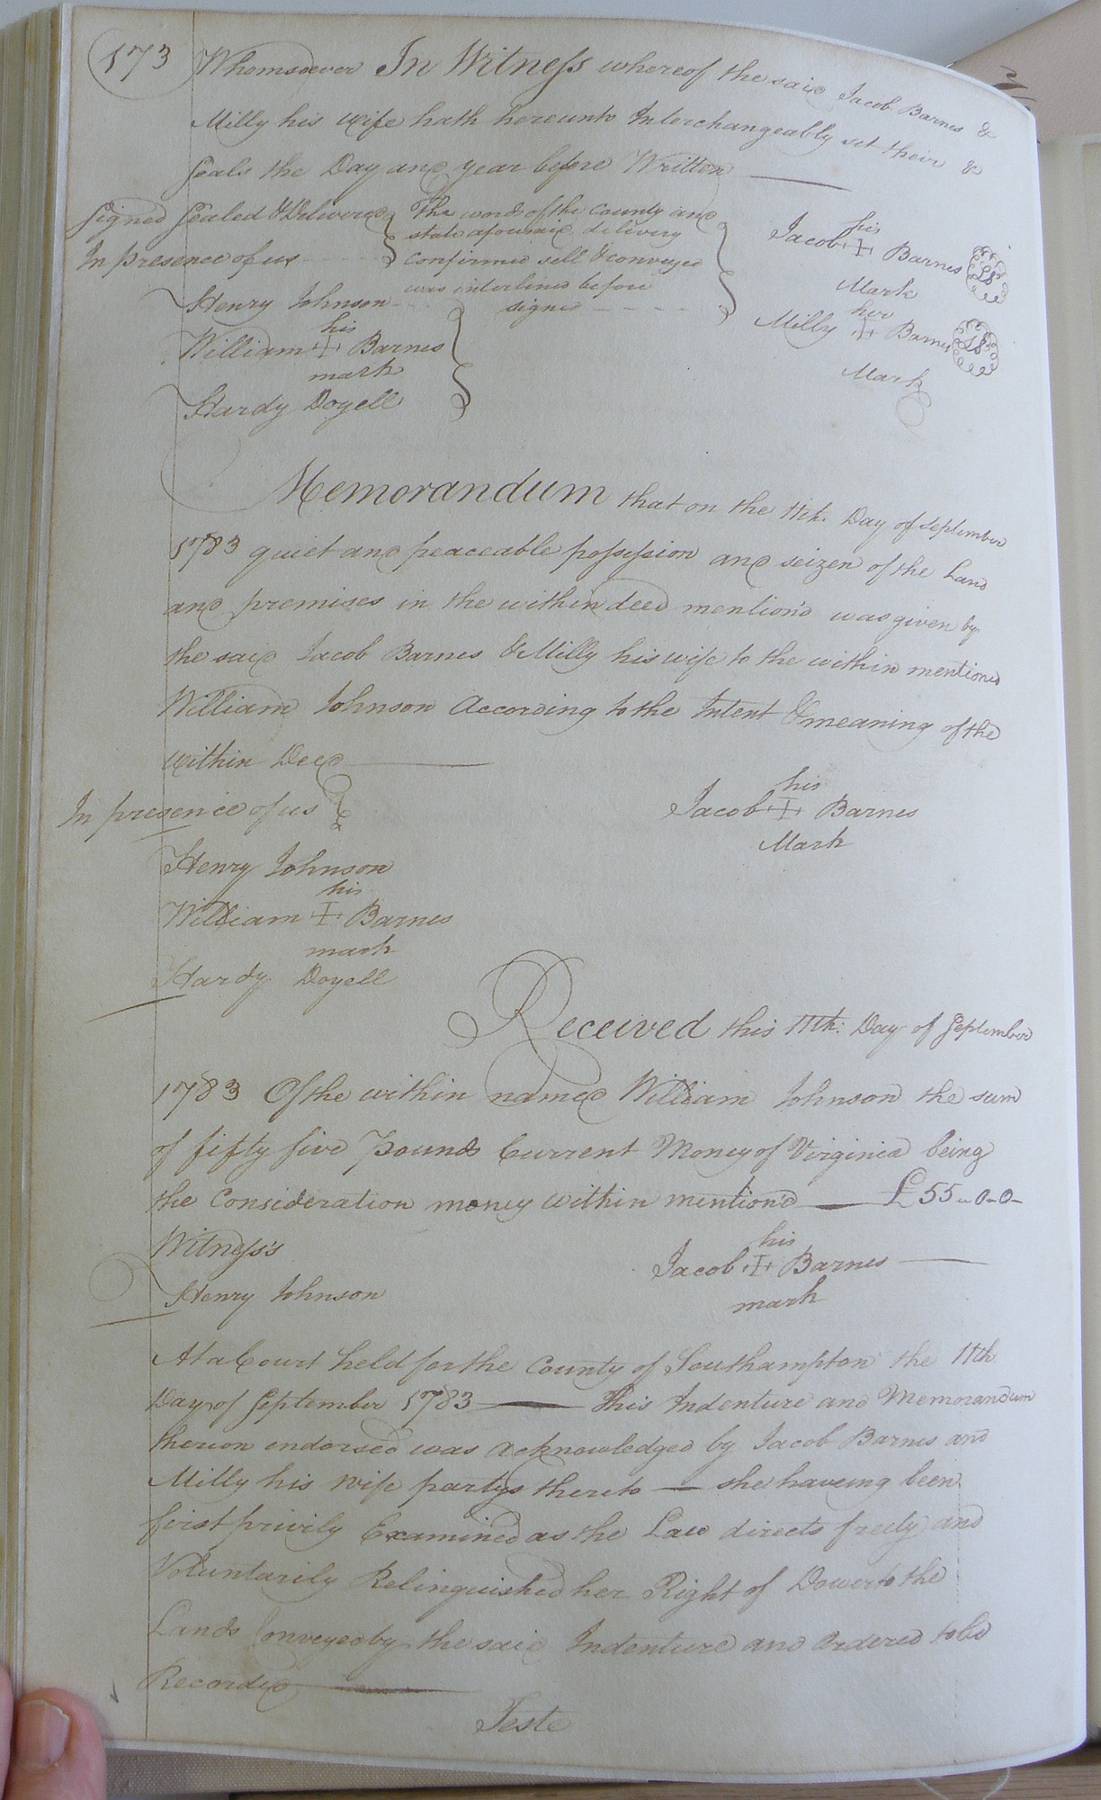 173 Whomsoever In Witness whereof the said Jacob Barnes &
Milly his Wife hath hereunto Interchangeably set their &
Seals the Day and year before Written
Signed Sealed & Delivered
In presence of us
The words of the County and
state aforesaid delivery
confirmed sell & conveyed
was interlined before
signed
his
Jacob + Barnes LS
Mark
her
Milly + Barnes LS
Mark
Henry Johnson
his
William + Barnes
mark
Hardy Doyell
Memorandum that on the 11th. Day of September
1783 quiet and peaceable possession and seizen of the Land
and premises in the within deed mention'd was given by
the said Jacob Barnes & Milly his wife to the within mentioned
William Johnson According to the Intent & meaning of the
within Deed
In presence of us
his
Jacob + Barnes
Mark
Henry Johnson
his
William + Barnes
mark
Hardy Doyell
Received this 11th. Day of September
1783 Of the within named William Johnson the sum
of fifty five Pounds Current Money of Virginia being
the Consideration money within mention'd £55-0-0
Witness's
his
Jacob + Barnes
mark
Henry Johnson
At a Court held for the County of Southampton the 11th
Day of September 1783 This Indenture and Memorandum
thereon endorsed was acknowledged by Jacob Barnes and
Milly his Wife partys thereto — she haveing been
first privily Examined as the Law directs freely and
Voluntarily Relinquished her Right of Dower to the
Lands Conveyed by the said Indenture and Ordered to be
Recorded
Teste